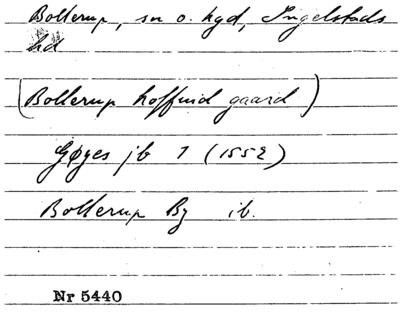 Bollerup, sn o. hgd, Ingelstads
hd
(Bollerup hoffuid gaard)
Gøyes jb 1 (1552)
Bollerup By ib.
Nr 5440